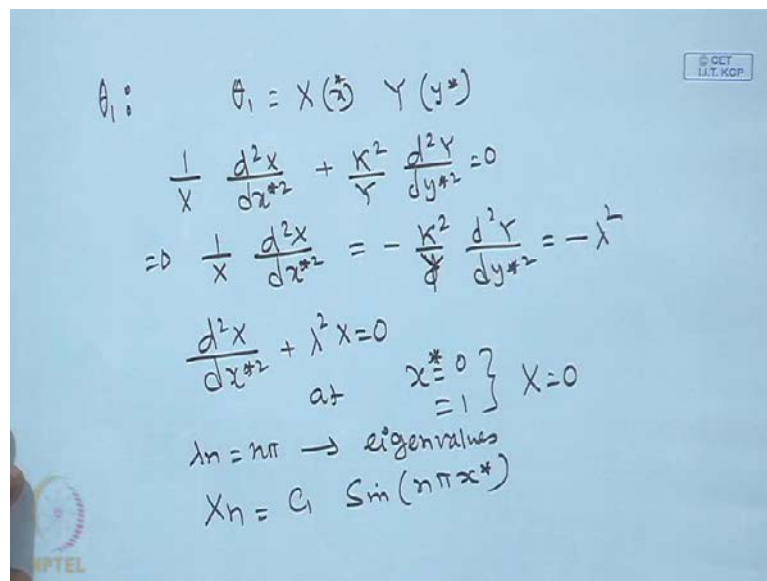 © CET
I.I.T. KGP
θ₁: θ₁ = X(x*) Y(y*)
1/X d²X/dx*² + K²/Y d²Y/dy*² = 0
⇒ 1/X d²X/dx*² = - K²/Y d²Y/dy*² = -λ²
d²X/dx*² + λ²X = 0
at x* = 0 } X = 0
= 1
λn = nπ → eigenvalues
Xn = C₁ Sin(nπx*)
NPTEL